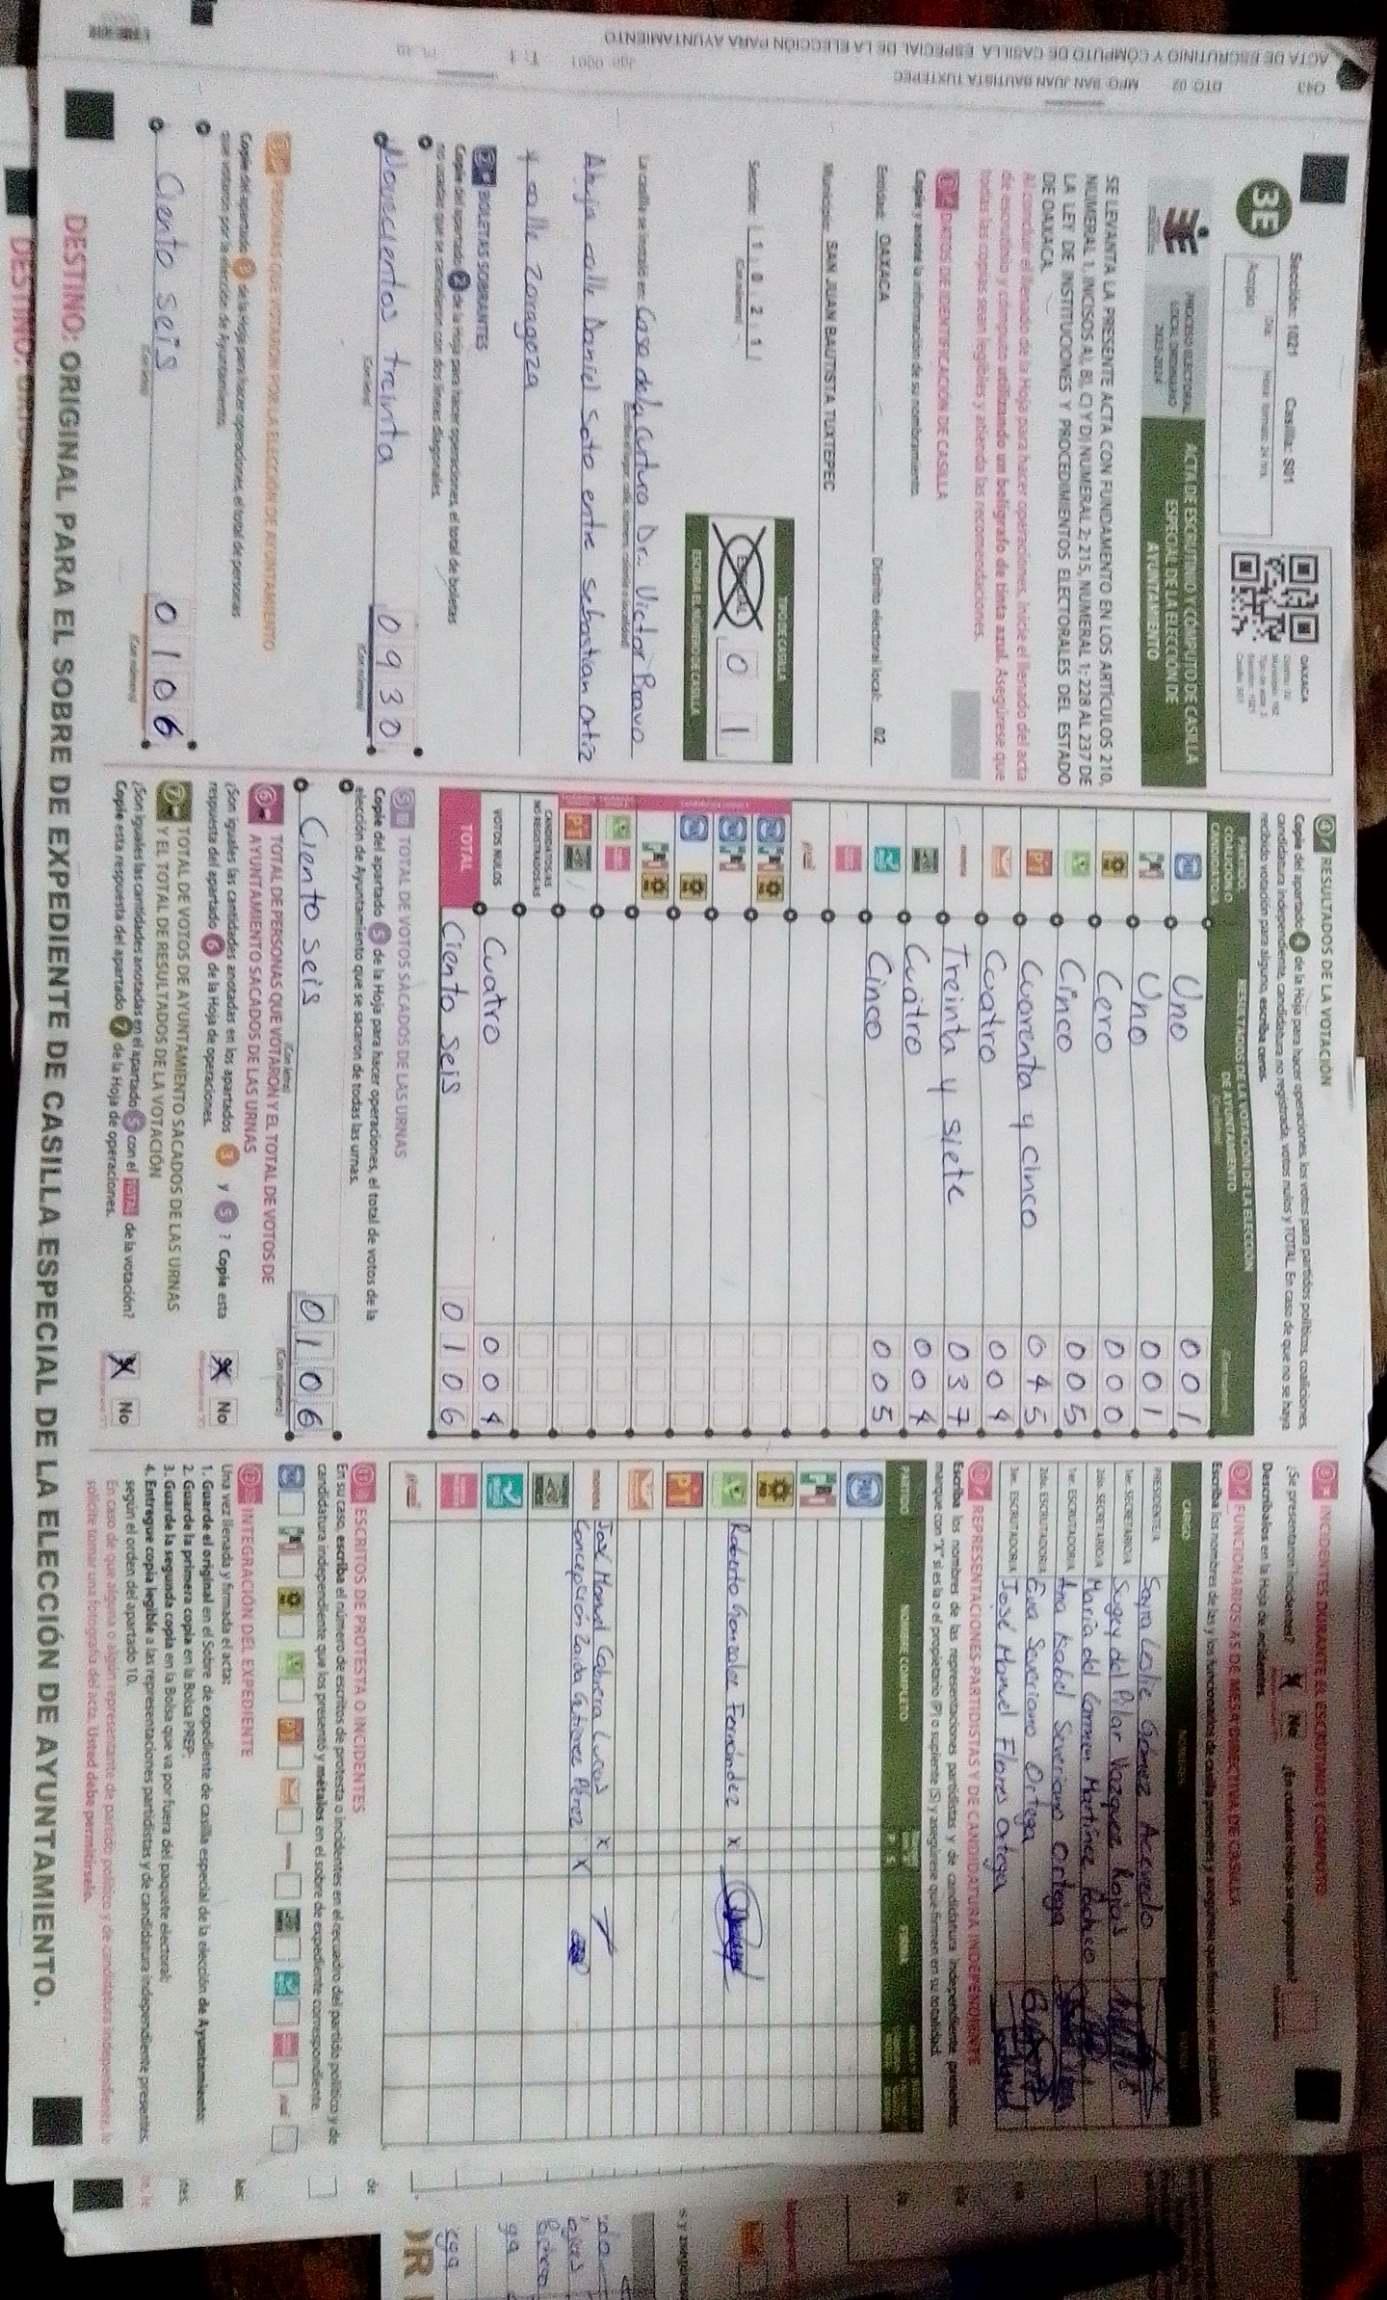 ACTA DE ESCRUTINIO Y CÓMPUTO DE CASILLA ESPECIAL DE LA ELECCIÓN PARA AYUNTAMIENTO
DTO: 02 MPO: SAN JUAN BAUTISTA TUXTEPEC
3E
Sección: 1021 Casilla: S01
Acopio
Día:
Hora: formato 24 hrs.
OAXACA
PROCESO ELECTORAL
LOCAL ORDINARIO
2023-2024
ACTA DE ESCRUTINIO Y CÓMPUTO DE CASILLA
ESPECIAL DE LA ELECCIÓN DE
AYUNTAMIENTO
SE LEVANTA LA PRESENTE ACTA CON FUNDAMENTO EN LOS ARTÍCULOS 210,
NUMERAL 1, INCISOS A), B), C) Y D) NUMERAL 2; 215, NUMERAL 1; 228 AL 237 DE
LA LEY DE INSTITUCIONES Y PROCEDIMIENTOS ELECTORALES DEL ESTADO
DE OAXACA.
Al concluir el llenado de la Hoja para hacer operaciones, inicie el llenado del acta
de escrutinio y cómputo utilizando un bolígrafo de tinta azul. Asegúrese que
todas las copias sean legibles y atienda las recomendaciones.
1 DATOS DE IDENTIFICACIÓN DE CASILLA
Copie y anote la información de su nombramiento.
Entidad: OAXACA Distrito electoral local: 02
Municipio: SAN JUAN BAUTISTA TUXTEPEC
Sección: 1 0 2 1
(Con número)
TIPO DE CASILLA
ESPECIAL 0 1
ESCRIBA EL NÚMERO DE CASILLA
La casilla se instaló en: Casa de la Cultura Dr. Victor Bravo
(Escriba el lugar, calle, número, colonia o localidad)
Ahuja calle Daniel Soto entre Sebastian Ortiz
y calle Zaragoza
2 BOLETAS SOBRANTES
Copie del apartado 2 de la Hoja para hacer operaciones, el total de boletas
no usadas que se cancelaron con dos líneas diagonales.
Novecientos treinta 0930
(Con letra) (Con número)
3 PERSONAS QUE VOTARON POR LA ELECCIÓN DE AYUNTAMIENTO
Copie del apartado 3 de la Hoja para hacer operaciones, el total de personas
que votaron por la elección de Ayuntamiento.
Ciento seis 0106
(Con letra) (Con número)
4 RESULTADOS DE LA VOTACIÓN
Copie del apartado 4 de la Hoja para hacer operaciones, los votos para partidos políticos, coaliciones,
candidatura independiente, candidatura no registrada, votos nulos y TOTAL. En caso de que no se haya
recibido votación para alguno, escriba ceros.
PARTIDO, COALICIÓN O CANDIDATO/A
RESULTADOS DE LA VOTACIÓN DE LA ELECCIÓN
DE AYUNTAMIENTO
PAN Uno 001
PRI Uno 001
PRD Cero 000
Cinco 005
PT Cuarenta y cinco 045
Cuatro 004
morena Treinta y siete 037
Cuatro 004
Cinco 005
CANDIDATOS/AS
NO REGISTRADOS/AS
VOTOS NULOS Cuatro 004
TOTAL Ciento seis 0106
5 TOTAL DE VOTOS SACADOS DE LAS URNAS
Copie del apartado 5 de la Hoja para hacer operaciones, el total de votos de la
elección de Ayuntamiento que se sacaron de todas las urnas.
Ciento seis 0106
(Con letra) (Con número)
6 TOTAL DE PERSONAS QUE VOTARON Y EL TOTAL DE VOTOS DE
AYUNTAMIENTO SACADOS DE LAS URNAS
¿Son iguales las cantidades anotadas en los apartados 3 y 5? Copie esta
respuesta del apartado 6 de la Hoja de operaciones. No
7 TOTAL DE VOTOS DE AYUNTAMIENTO SACADOS DE LAS URNAS
Y EL TOTAL DE RESULTADOS DE LA VOTACIÓN
¿Son iguales las cantidades anotadas en el apartado 5 con el TOTAL de la votación?
Copie esta respuesta del apartado 7 de la Hoja de operaciones. No
8 INCIDENTES DURANTE EL ESCRUTINIO Y CÓMPUTO
¿Se presentaron incidentes? No ¿En cuántas Hojas se registraron?
Descríbalos en la Hoja de incidentes.
9 FUNCIONARIOS/AS DE MESA DIRECTIVA DE CASILLA
Escriba los nombres de las y los funcionarios de casilla presentes y asegúrese que firmen en su totalidad.
CARGO NOMBRES FIRMA
PRESIDENTE/A Sayra Leslie Gómez Acevedo
1er. SECRETARIO/A Sugey del Pilar Vazquez Rojas
2do. SECRETARIO/A Maria del Carmen Martínez Pacheco
1er. ESCRUTADOR/A Ana Isabel Severiano Ortega
2do. ESCRUTADOR/A Eva Severiano Ortega
3er. ESCRUTADOR/A José Manuel Flores Ortega
10 REPRESENTACIONES PARTIDISTAS Y DE CANDIDATURA INDEPENDIENTE
Escriba los nombres de las representaciones partidistas y de candidatura independiente presentes,
marque con "X" si es la o el propietario (P) o suplente (S) y asegúrese que firmen en su totalidad.
PARTIDO NOMBRE COMPLETO P S FIRMA
Roberto Gonzalez Fernández X
morena José Manuel Cabrera Lucas X
Concepción Zaida Gutierrez Pérez X
11 ESCRITOS DE PROTESTA O INCIDENTES
En su caso, escriba el número de escritos de protesta o incidentes en el recuadro del partido político y de
candidatura independiente que los presentó y métalos en el sobre de expediente correspondiente.
12 INTEGRACIÓN DEL EXPEDIENTE
Una vez llenada y firmada el acta:
1. Guarde el original en el Sobre de expediente de casilla especial de la elección de Ayuntamiento;
2. Guarde la primera copia en la Bolsa PREP;
3. Guarde la segunda copia en la Bolsa que va por fuera del paquete electoral;
4. Entregue copia legible a las representaciones partidistas y de candidatura independiente presentes,
según el orden del apartado 10.
En caso de que alguna o algún representante de partido político y de candidatura independiente, le
solicite tomar una fotografía del acta. Usted debe permitírselo.
DESTINO: ORIGINAL PARA EL SOBRE DE EXPEDIENTE DE CASILLA ESPECIAL DE LA ELECCIÓN DE AYUNTAMIENTO.